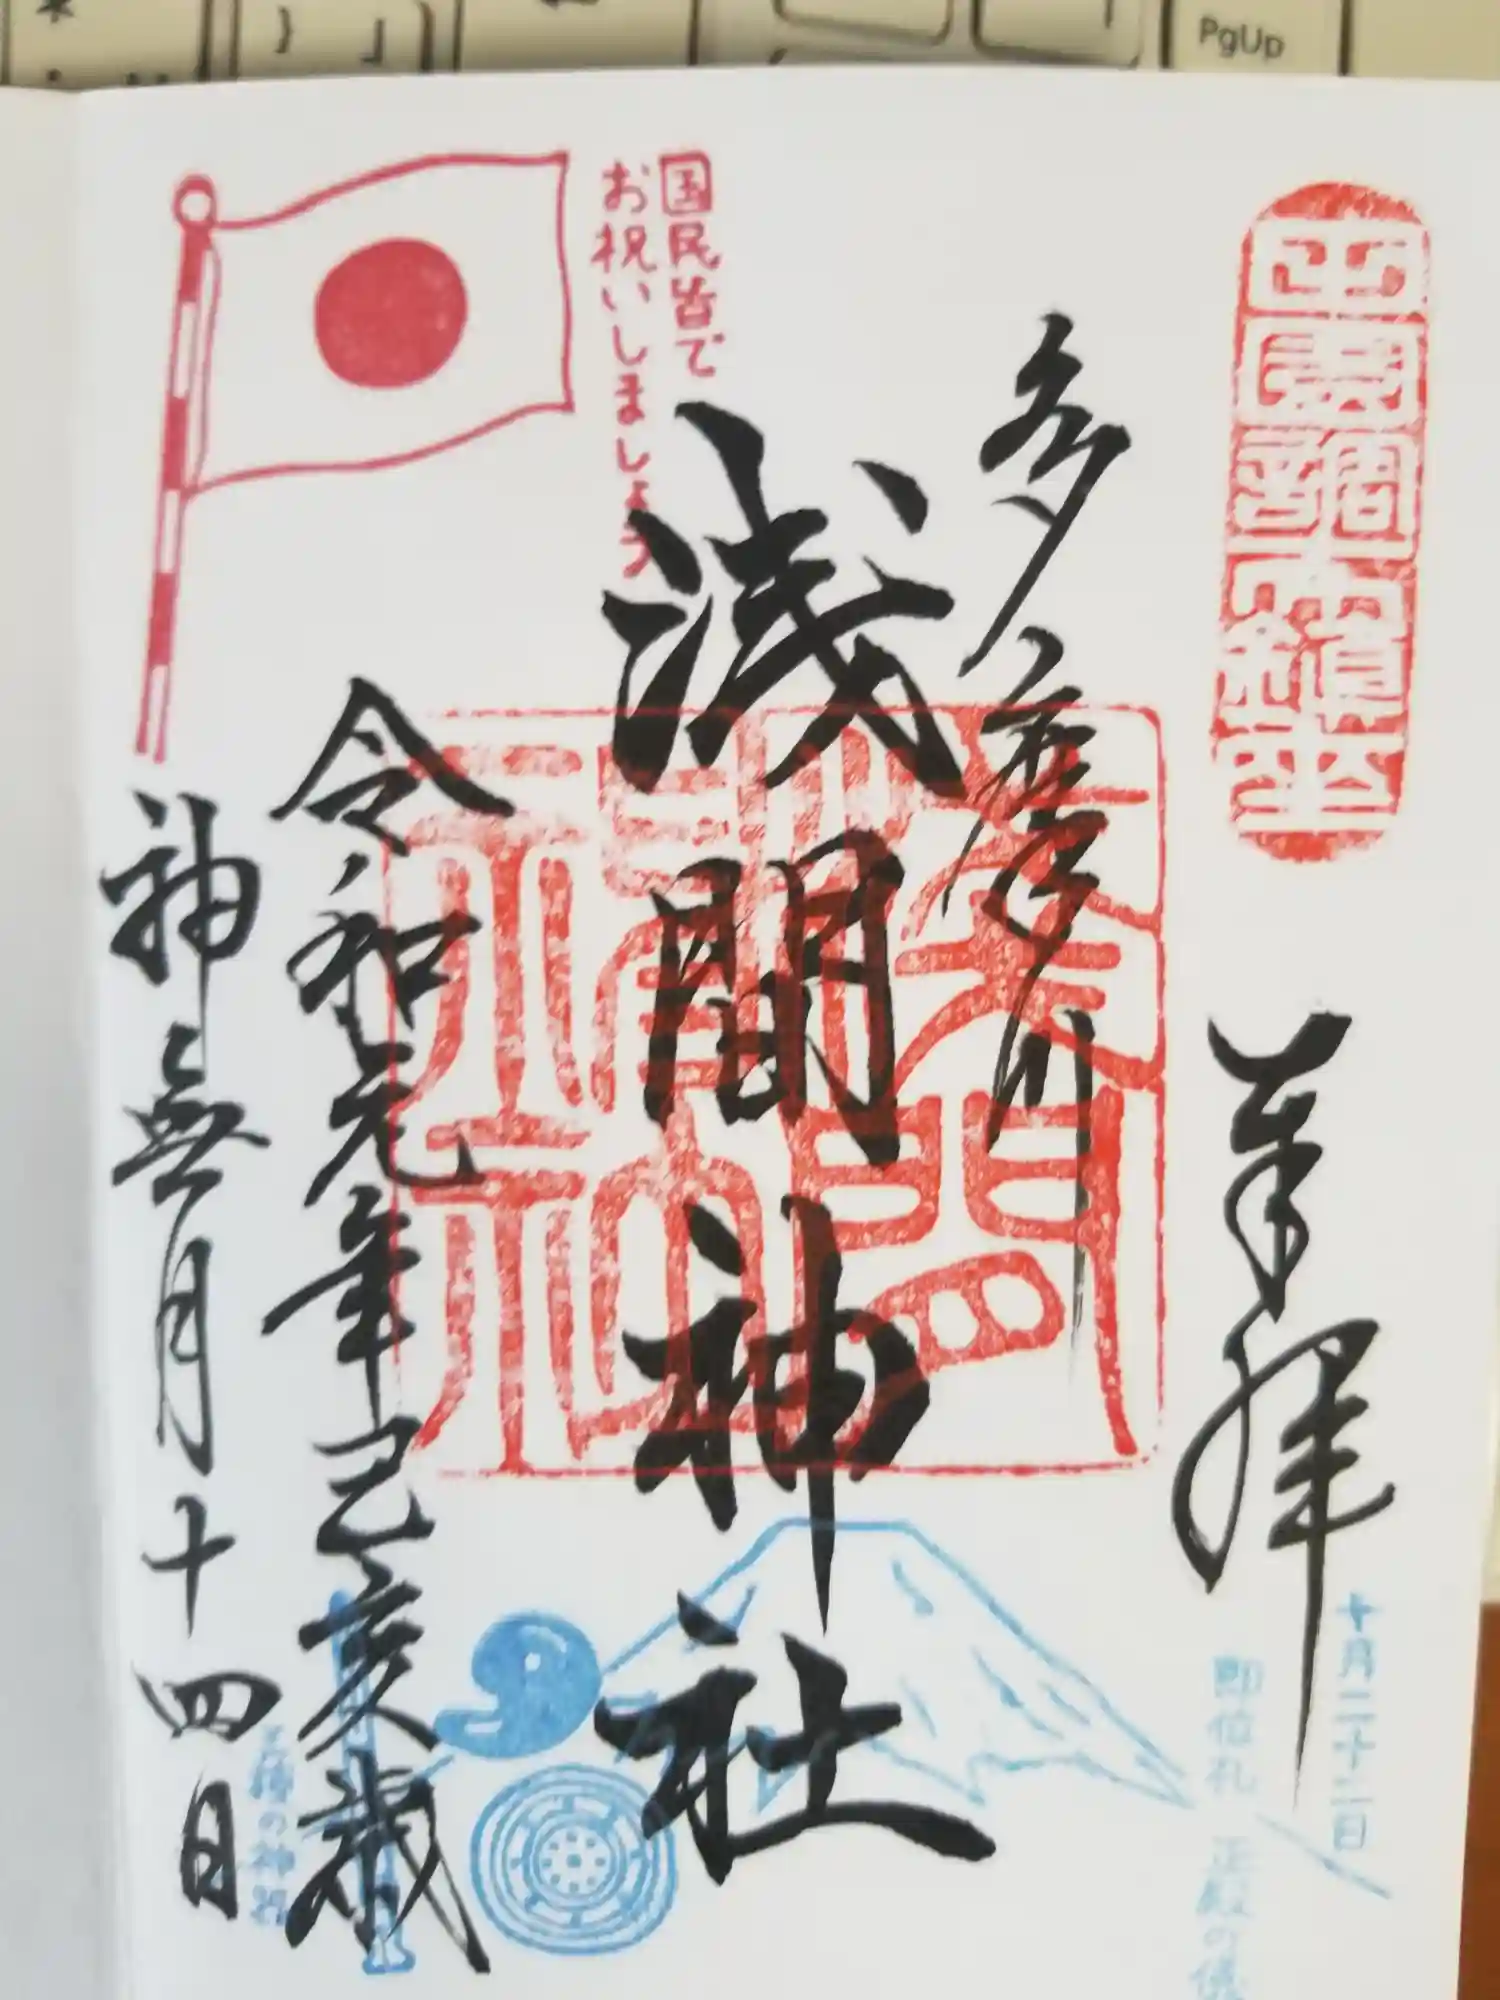 PgUp
奉拝
多摩川
浅間神社
令和元年己亥歳
神無月十四日
国民皆で
お祝いしましょう
十月二十二日
即位礼 正殿の儀
三種の神器
浅間神社